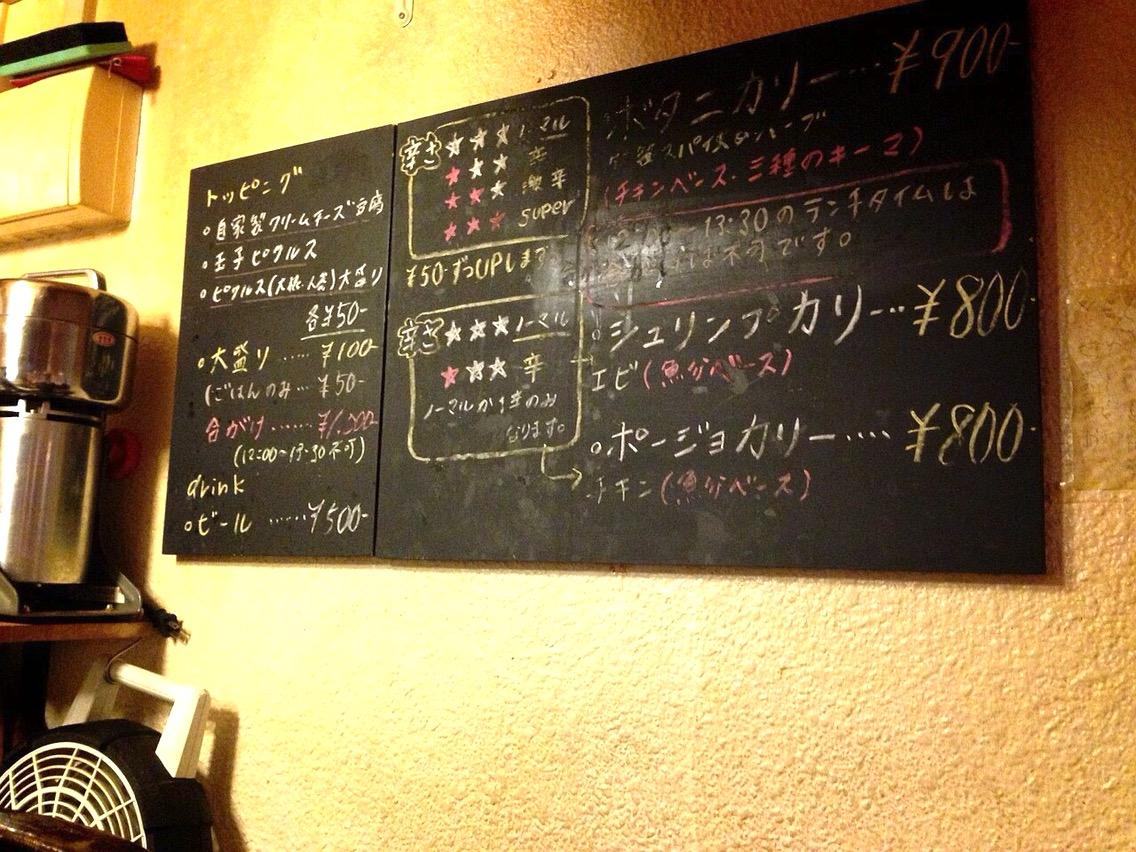 トッピング
。自家製クリームチーズ豆腐
。玉子ピクルス
。ピクルス(大根・人参)大盛り
各¥50-
。大盛り ..... ¥100-
(ごはんのみ... ¥50-
合がけ ....... ¥1,200-
(12:00~13:30不可)
drink
。ビール ......¥500-
辛さ ★★★ ノーマル
★★★ 辛
★★★ 激辛
★★★ super
¥50-ずつUPします
辛さ ★★★ ノーマル
★★★ 辛
ノーマルか辛のみ
なります。
ボタニカリー.... ¥900-
スパイス&ハーブ
(チキンベース・三種のキーマ)
13:30のランチタイムは
は不可です。
。シュリンプカリー... ¥800
エビ(魚介ベース)
。ポージョカリー.... ¥800
チキン(魚介ベース)